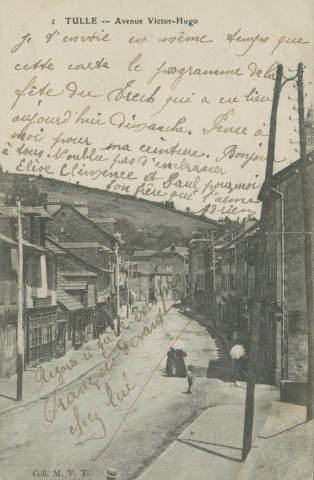 1 TULLE -- Avenue Victor-Hugo
Je t'envoie en même temps que
cette carte le programme de la
fête du Trech qui a eu lieu
aujourd'hui dimanche. Pense à
moi pour ma ceinture. Bonjour
à tous. N'oublie pas d'embrasser
Elise Clémence et Paul pour moi
ton frère qui t'aime
Adrien
Regarde
François devant
chez lui
Coll. M. V. T.